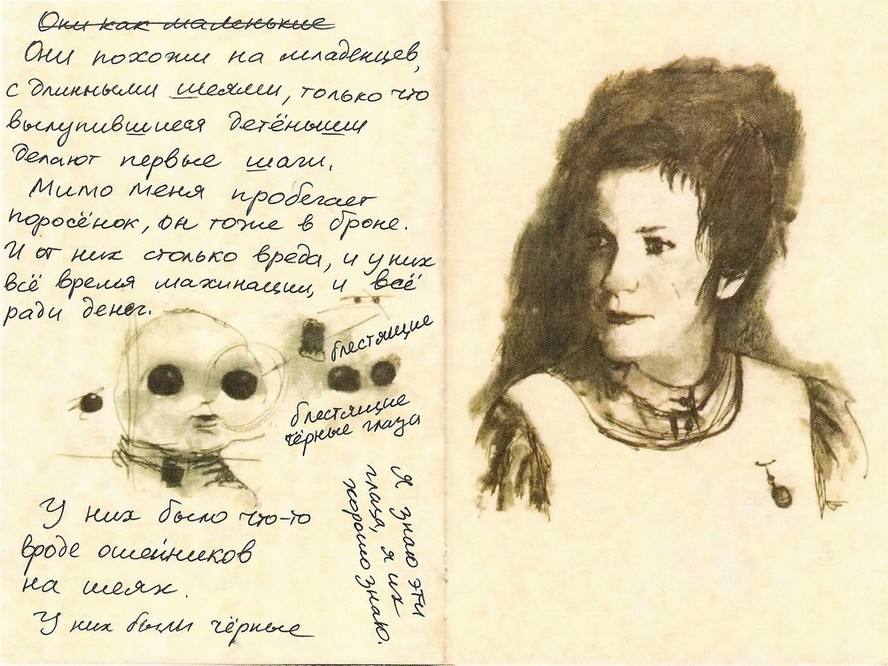 Они как маленькие
Они похожи на младенцев,
с длинными шеями, только что
вылупившиеся детёныши
делают первые шаги.
Мимо меня пробегает
поросёнок, он тоже в броне.
И от них столько вреда, и у них
всё время махинации, и всё
ради денег.
блестящие
блестящие
чёрные глаза
У них было что-то
вроде ошейников
на шеях.
У них были чёрные
Я знаю эти
глаза, я их
хорошо знаю.